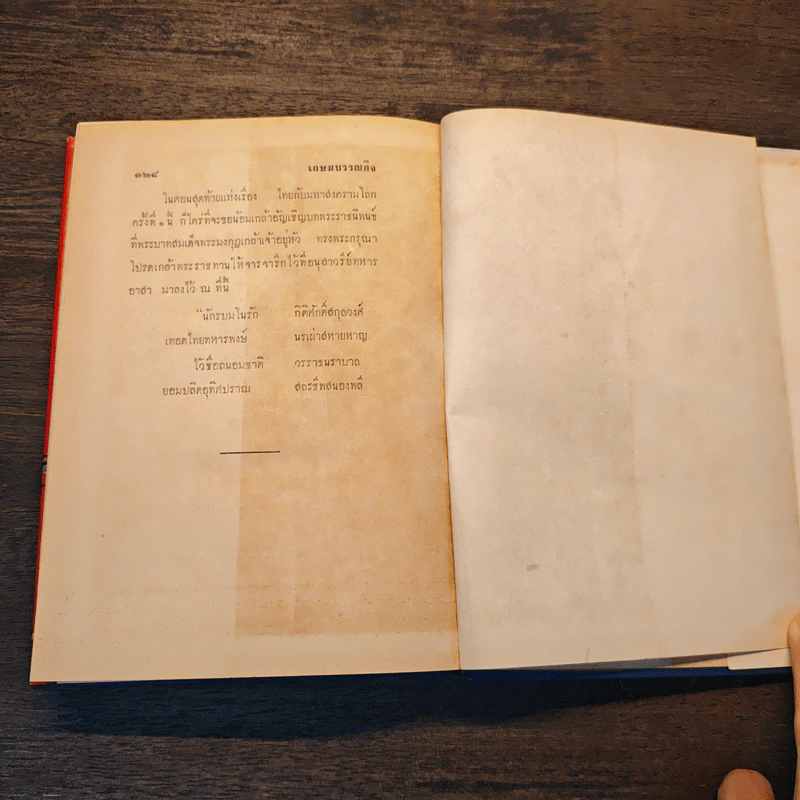 ๑๒๔ เกษมบรรณกิจ
ในตอนสุดท้ายแห่งเรื่อง ไทยกับมหาสงครามโลก
ครั้งที่ ๑ นี้ ก็ใคร่ที่จะขอน้อมเกล้าอัญเชิญบทพระราชนิพนธ์
ที่พระบาทสมเด็จพระมงกุฎเกล้าเจ้าอยู่หัว ทรงพระกรุณา
โปรดเกล้าพระราชทานให้จารจารึกไว้ที่อนุสาวรีย์ทหาร
อาสา มาลงไว้ ณ ที่นี้
“นักรบมโนรัก กิติศักดิ์สกุลวงศ์
เทอดไทยทหารพงษ์ นรเผ่าสหายหาญ
ไว้ชื่อถนอมชาติ วรราชนราบาล
ยอมปลิตอุทิศปราณ สละชีพสนองพลี